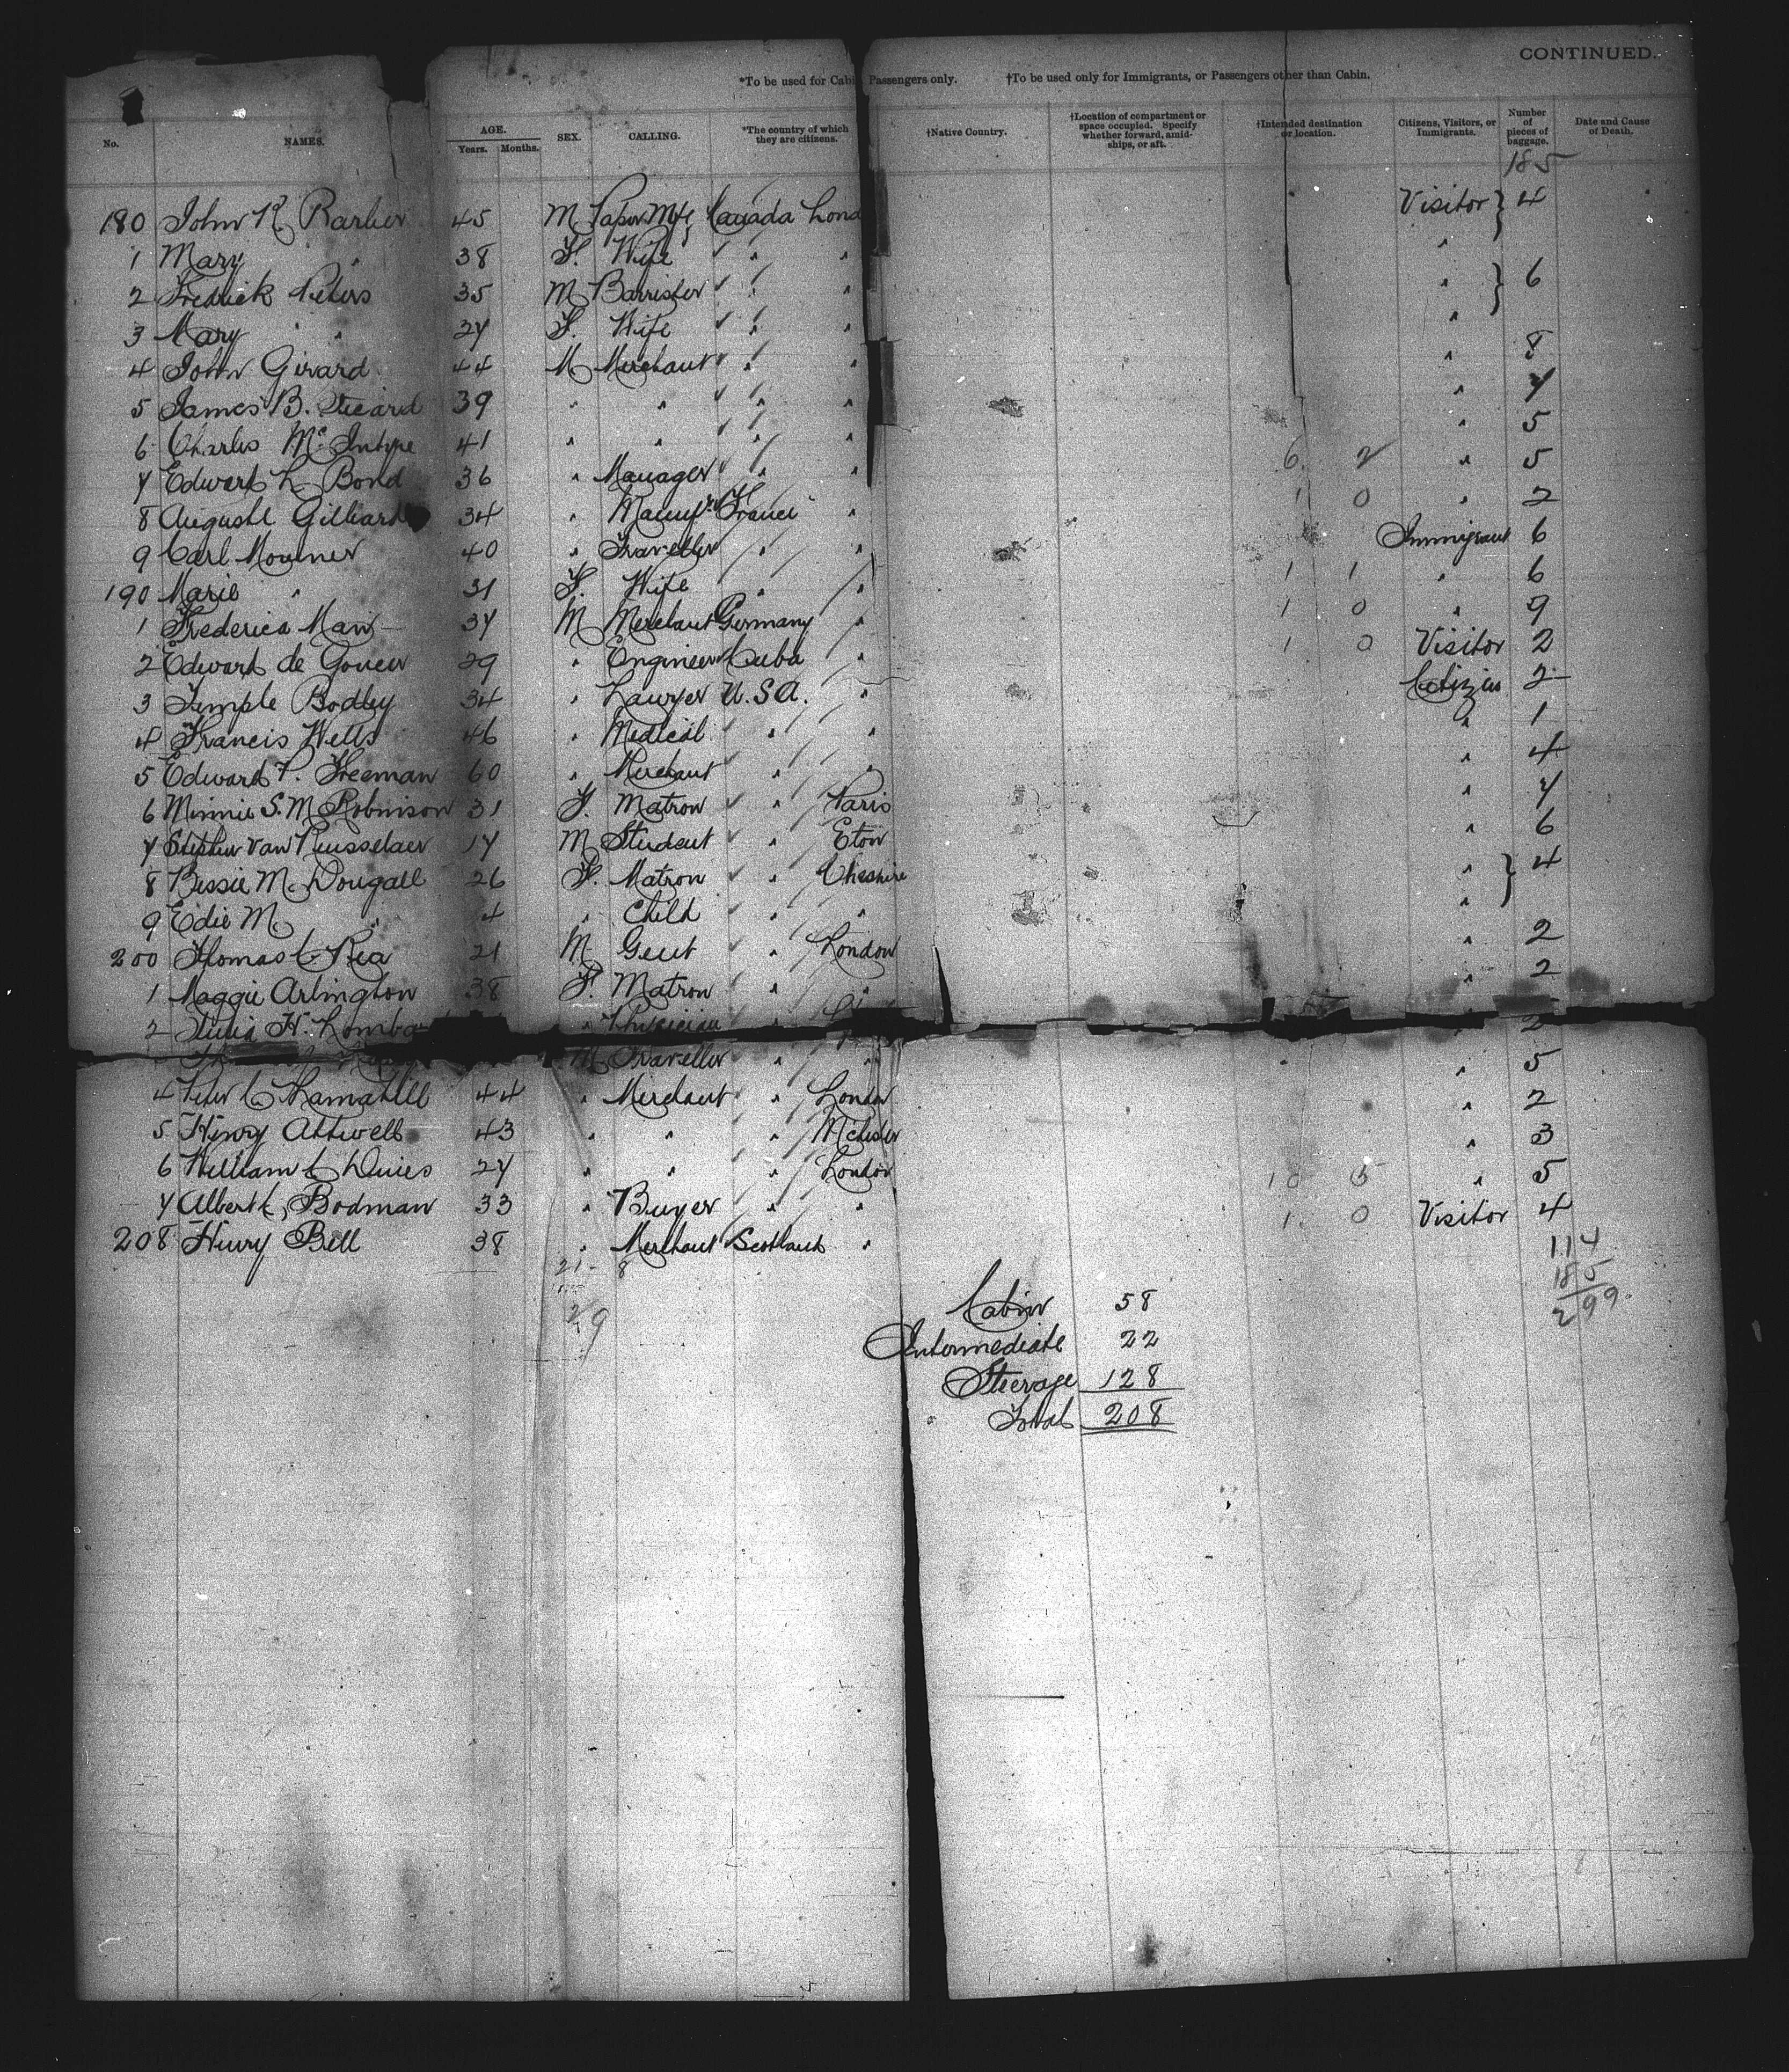 CONTINUED.
*To be used for Cabin Passengers only. †To be used only for Immigrants, or Passengers other than Cabin.
No. NAMES. AGE. Years. Months. SEX. CALLING. *The country of which they are citizens. †Native Country. †Location of compartment or space occupied. Specify whether forward, amidships, or aft. †Intended destination or location. Citizens, Visitors, or Immigrants. Number of pieces of baggage. Date and Cause of Death.
185
180 John R Barber 45 M Paper Mfr Canada Lond Visitor } 4
1 Mary " 38 F. Wife " " "
2 Fredrick Peters 35 M Barrister " " " } 6
3 Mary " 27 F. Wife " " "
4 John Girard 44 M Merchant " " " 8
5 James B. 39 " " " " " 7
6 Charles McIntyre 41 " " " " " 5
7 Edward L Bond 36 " Manager " " 6 2 " 5
8 Auguste Gilliard 34 " France " 1 0 " 2
9 Carl 40 " Traveller " " Immigrant 6
190 Marie " 31 F. Wife " " 1 1 " 6
1 37 M Merchant Germany " 1 0 " 9
2 Edward de 29 " Engineer Cuba " 1 0 Visitor 2
3 Temple Bodley 34 " Lawyer U.S.A. " Citizen 2
4 Francis Wells 46 " Medical " " " 1
5 Edward F. Freeman 60 " Merchant " " " 4
6 Minnie S. M Robinson 31 F. Matron " Paris " 7
7 Stephen Van Rensselaer 17 M Student " Eton " 6
8 Bessie McDougall 26 F. Matron " Cheshire " } 4
9 Edie M. " 4 " Child " " "
200 Thomas C Rea 21 M Gent " London " 2
1 Maggie Arlington 38 F. Matron " " 2
2 Julia H. " Physician " " 2
M Traveller " " " 5
4 Peter C 44 " Merchant " London " 2
5 Henry Attwell 43 " " " Mchester " 3
6 William C 27 " " " London 10 5 " 5
7 Albert C, Bodman 33 " Buyer " " 1 0 Visitor 4
208 Henry Bell 38 " Merchant Scotland "
114
21 - 8
185
29
299
Cabin 58
Intermediate 22
Steerage 128
Total 208